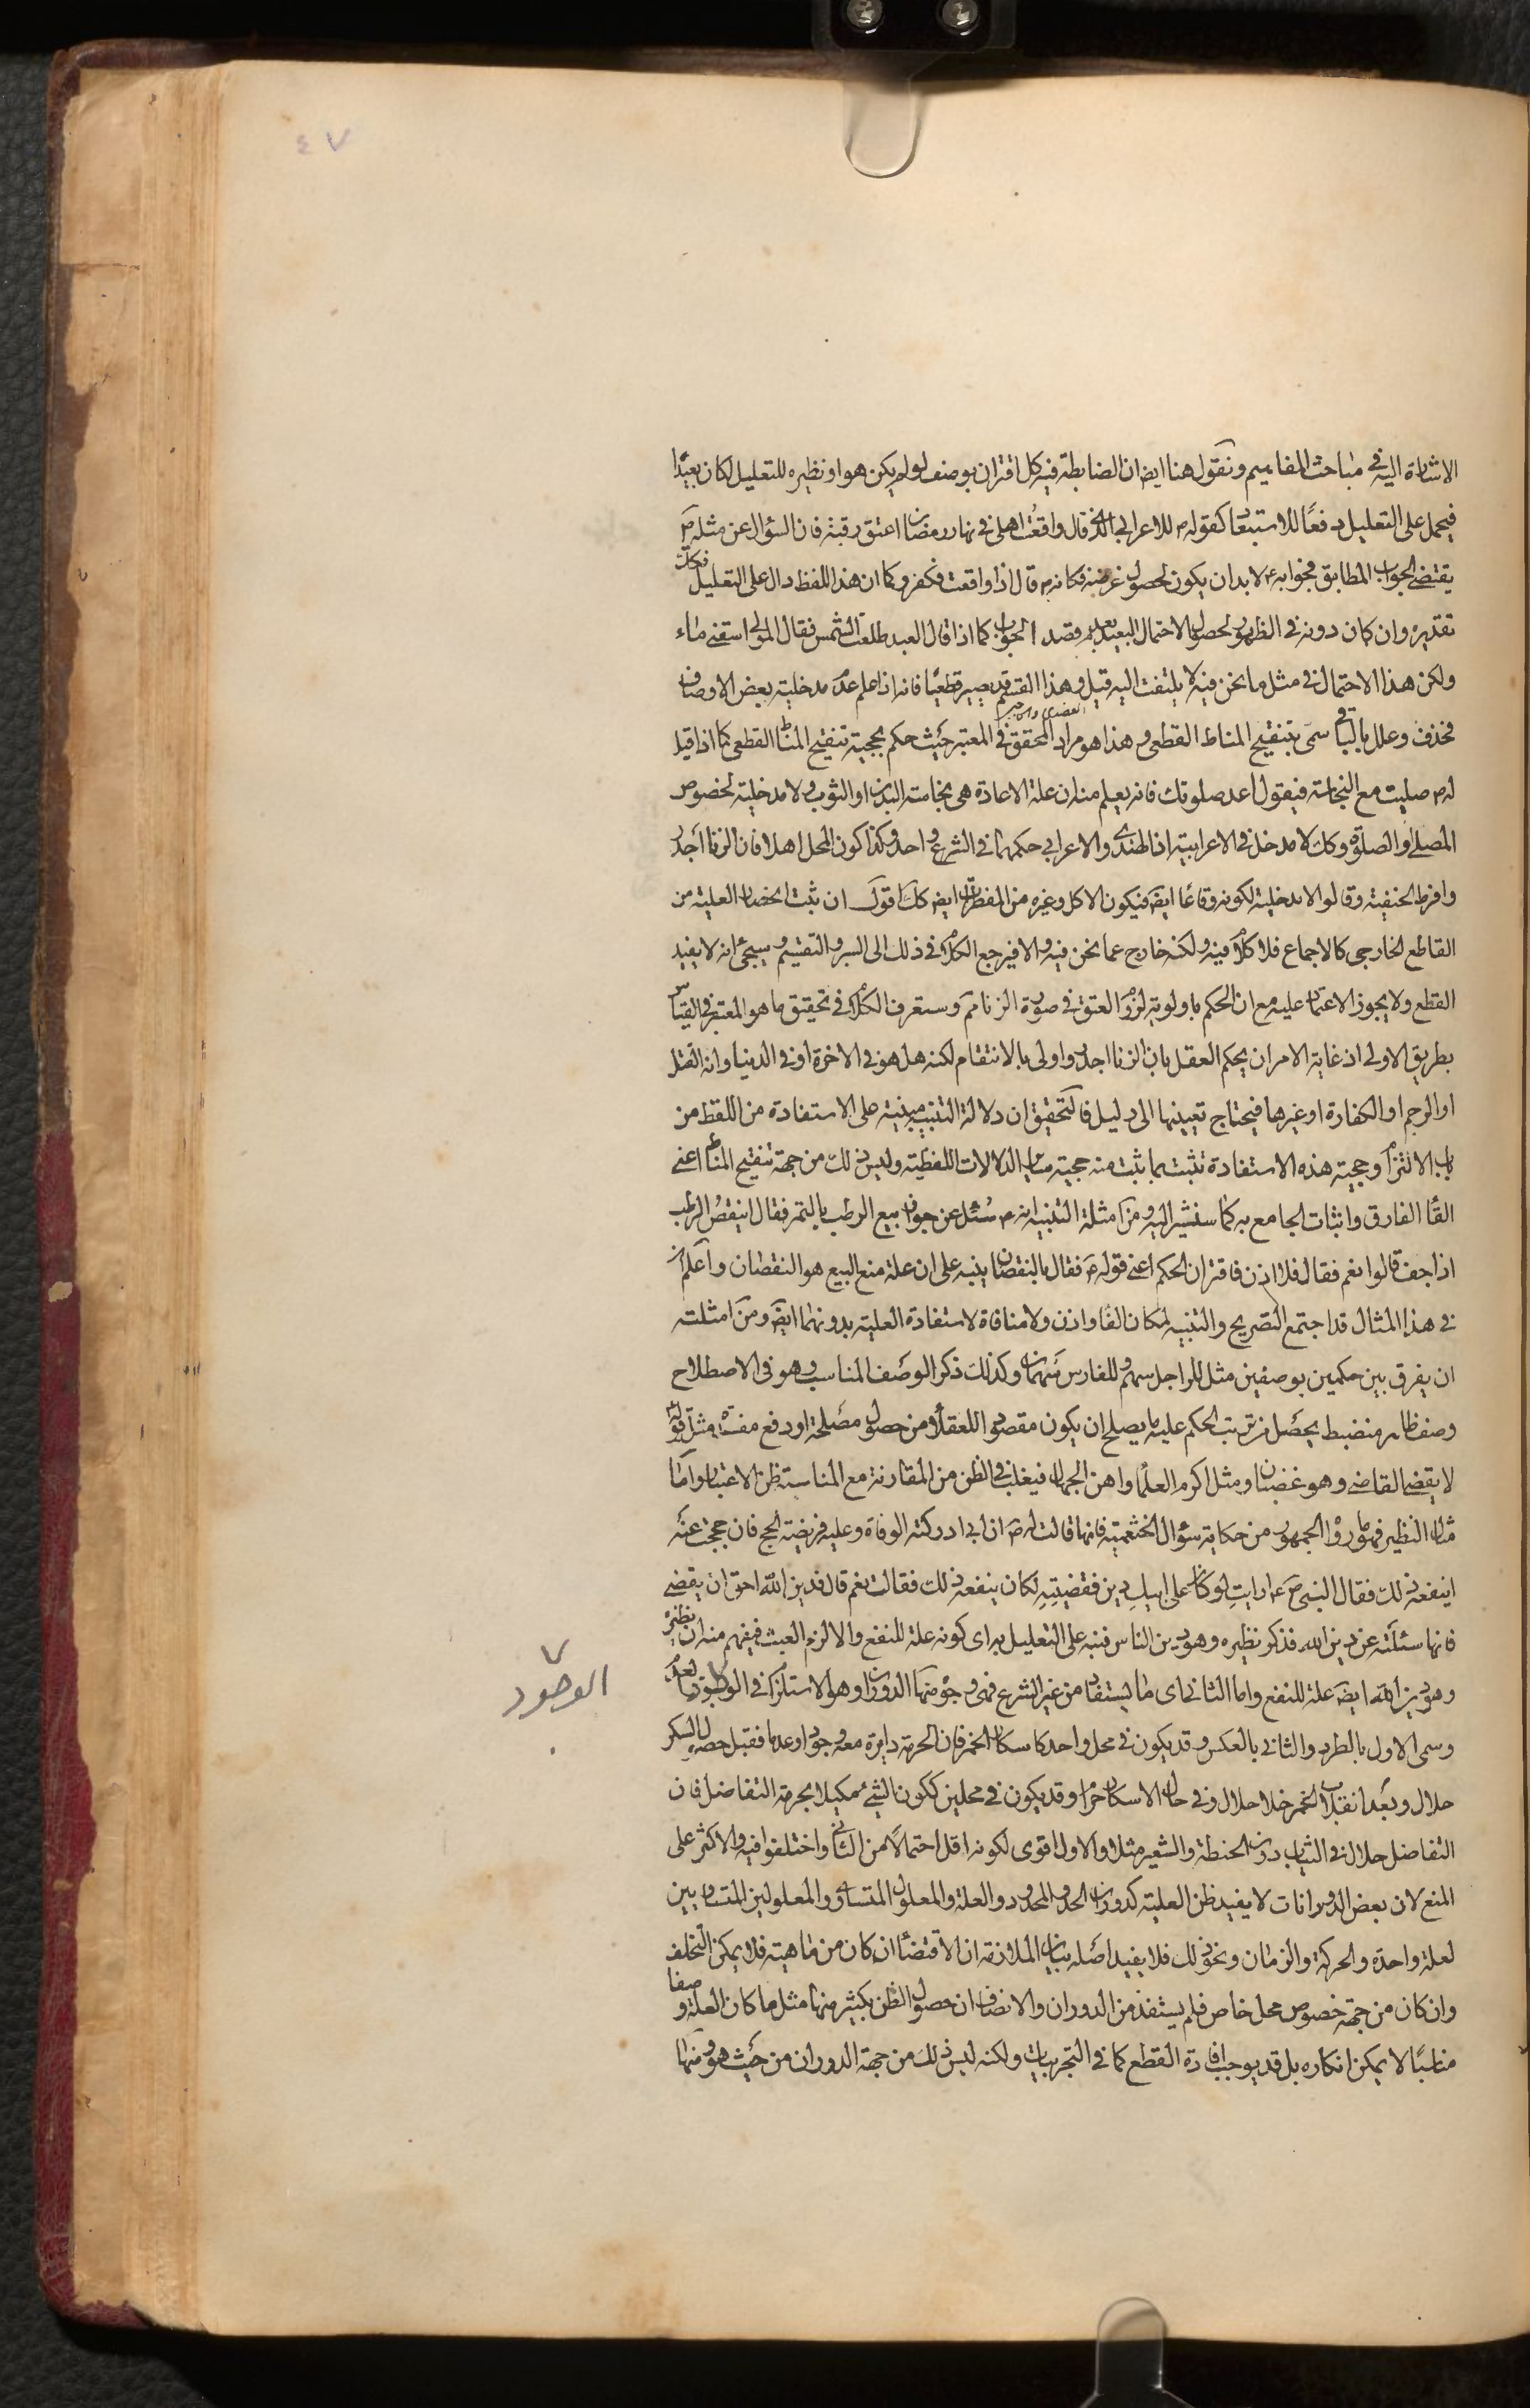 ٤٧
الاشارة اليه في مباحث المفاهيم ونقول هنا ايض ان الضابطة فيه كل اقتران بوصف لو لم يكن هو او نظيره للتعليل لكان بعيدًا
فيحمل على التعليل دفعًا للاستبعاد كقوله ص للاعرابي الذي قال واقعت اهلي في نهار رمضان اعتق رقبة فان السؤال عن مثله ص
يقتضي الجواب المطابق فجوابه ع لا بد ان يكون لحصول غرضه فكانه ص قال اذا واقعت فكفر وكما ان هذا اللفظ دال على التعليل فكك
تقديره وان كان دونه في الظهور لحصول الاحتمال البعيد بعدم قصد الجواب كما اذا قال العبد طلعت الشمس فقال المولى اسقني ماء
ولكن هذا الاحتمال في مثل ما نحن فيه لا يلتفت اليه قيل وهذا القسم قد يصير قطعيًا فانه اذا علم عدم مدخلية بعض الاوصاف
فحذف وعلل بالباقي سمى بتنقيح المناط القطعي وهذا هو مراد المحقق في المعتبر حيث حكم بحجية تنقيح المناط القطعي كما اذا قيل
له ص صليت مع النجاسة فيقول اعد صلوتك فانه يعلم منه ان علة الاعادة هي نجاسة البدن او الثوب ولا مدخلية لخصوص
المصلي والصلوة وكك لا مدخل في الاعرابية اذ الهندي والاعرابي حكمهما في الشرع واحد وكذا كون المحل اهلا فان الزنا اجدر
وافرط الحنفية وقالوا لا مدخلية لكونه وقاعًا ايض فيكون الاكل وغيره من المفطرات ايض كك اقول ان ثبت انحصار العلية من
القاطع الخارجي كالاجماع فلا كلام فيه ولكنه خارج عما نحن فيه والا فيرجع الكلام في ذلك الى السبر والتقسيم وسيجئ انه لا يفيد
القطع ولا يجوز الاعتماد عليه مع ان الحكم باولوية لزوم العتق في صورة الزنا مم وستعرف الكلام في تحقيق ما هو المعتبر في القياس
بطريق الاولى اذ غاية الامر ان يحكم العقل بان الزنا اجدر واولى بالانتقام لكنه هل هو في الاخرة او في الدنيا وانه القتل
او الرجم او الكفارة او غيرها فيحتاج تعيينها الى دليل فالتحقيق ان دلالة التنبيه مبنية على الاستفادة من اللفظ من
باب الالتزام وحجية هذه الاستفادة تثبت بما يثبت منه حجية ساير الدلالات اللفظية وليس ذلك من جهة تنقيح المناط اعني
الغاء الفارق واثبات الجامع به كما سنشير اليه ومن امثلة التنبيه انه ص سُئل عن جواز بيع الرطب بالتمر فقال اينقص الرطب
اذا جف قالوا نعم فقال فلا اذن فاقتران الحكم اعني قوله ص فقال بالنقصان ينبه على ان علة منع البيع هو النقصان واعلم ان
في هذا المثال قد اجتمع التصريح والتنبيه لمكان الفاء واذن ولا منافاة لاستفادة العلية بدونهما ايض ومن امثلته
ان يفرق بين حكمين بوصفين مثل للراجل سهم وللفارس سهمان وكذلك ذكر الوصف المناسب وهو في الاصطلاح
وصف ظاهر منضبط يحصل من ترتب الحكم عليه ما يصلح ان يكون مقصودا للعقلاء من حصول مصلحة او دفع مفسدة مثل قوله
لا يقضي القاضي وهو غضبان ومثل اكرم العلماء واهن الجهال فيغلب في الظن من المقارنة مع المناسبة ظن الاعتبار واما
مثال النظير فهو ما رواه الجمهور من حكاية سؤال الخثعمية فانها قالت له ص ان ابي ادركته الوفاة وعليه فريضة الحج فان حججت عنه
اينفعه ذلك فقال النبي ص ارايتِ لو كان على ابيكِ دين فقضيتِه لكان ينفعه ذلك فقالت نعم قال فدين الله احق ان يقضي
فانها سئلته عن دين الله فذكر نظيره وهو دين الناس فنبه على التعليل به اى كونه علة للنفع والا لزم العبث فيفهم منه ان نظيره
وهو دين الله ايض علة للنفع واما الثاني اى ما يستفاد من غير الشرع فهي وجوه منها الدوران وهو الاستلزام في الوجود والعدم
وسمى الاول بالطرد والثاني بالعكس وقد يكون في محل واحد كاسكار الخمر فان الحرمة دايرة معه وجودا وعدما فقبل حصول السكر
حلال وبعد انقلاب الخمر خلا حلال وفي حال الاسكار حرام وقد يكون في محلين ككون الشئ مكيلا لحرمة التفاضل فان
التفاضل حلال في الثياب دون الحنطة والشعير مثلا والاول اقوى لكونه اقل احتمالًا من الثاني واختلفوا فيه والاكثر على
المنع لان بعض الدورانات لا يفيد ظن العلية كدوران الحد والمحدود والعلة والمعلول المتساوي والمعلولين المتساويين
لعلة واحدة والحركة والزمان ونحو ذلك فلا يفيد اصله بيان الملازمة ان الاقتضاء ان كان من ماهيته فلا يمكن التخلف
وان كان من جهة خصوص محل خاص فلم يستفد من الدوران والانصاف ان حصول الظن بكثير منها مثل ما كان العلة وصفا
مناسبًا لا يمكن انكاره بل قد يوجب افادة القطع كما في التجربيات ولكنه ليس ذلك من جهة الدوران من حيث هو ومنها
الوجود